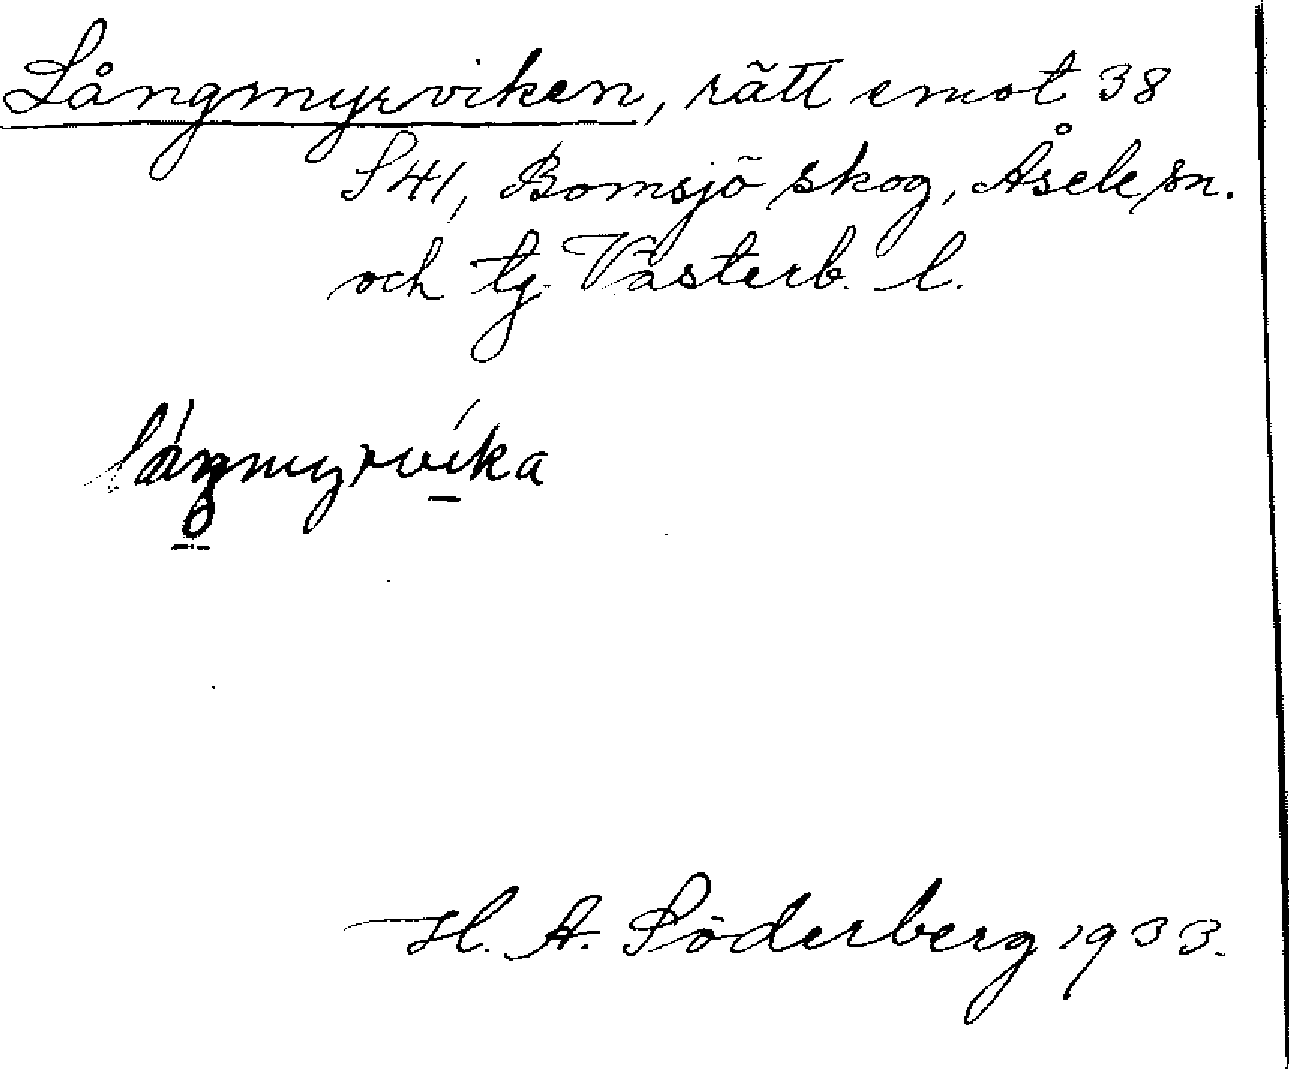 Långmyrviken, rätt emot 38
S 41, Bomsjö skog, Åsele sn.
och tg. Västerb. l.
lángmyrvíka
H. A. Söderberg 1933.